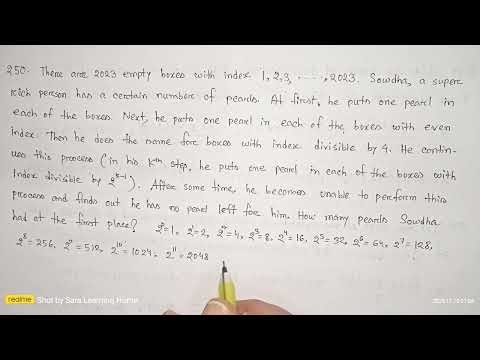 250. There are 2023 empty boxes with index 1, 2, 3, ......, 2023. Sowdha, a super
rich person has a certain number of pearls. At first, he puts one pearl in
each of the boxes. Next, he puts one pearl in each of the boxes with even
index. Then he does the same for boxes with index divisible by 4. He contin-
ues this process (in his kth step, he puts one pearl in each of the boxes with
Index divisible by 2^k-1). After some time, he becomes unable to perform this
process and finds out he has no pearl left for him. How many pearls Sowdha
had at the first place? 2^0=1, 2^1=2, 2^2=4, 2^3=8, 2^4=16, 2^5=32, 2^6=64, 2^7=128,
2^8=256, 2^9=512, 2^10=1024, 2^11=2048
realme Shot by Sara Learning Home